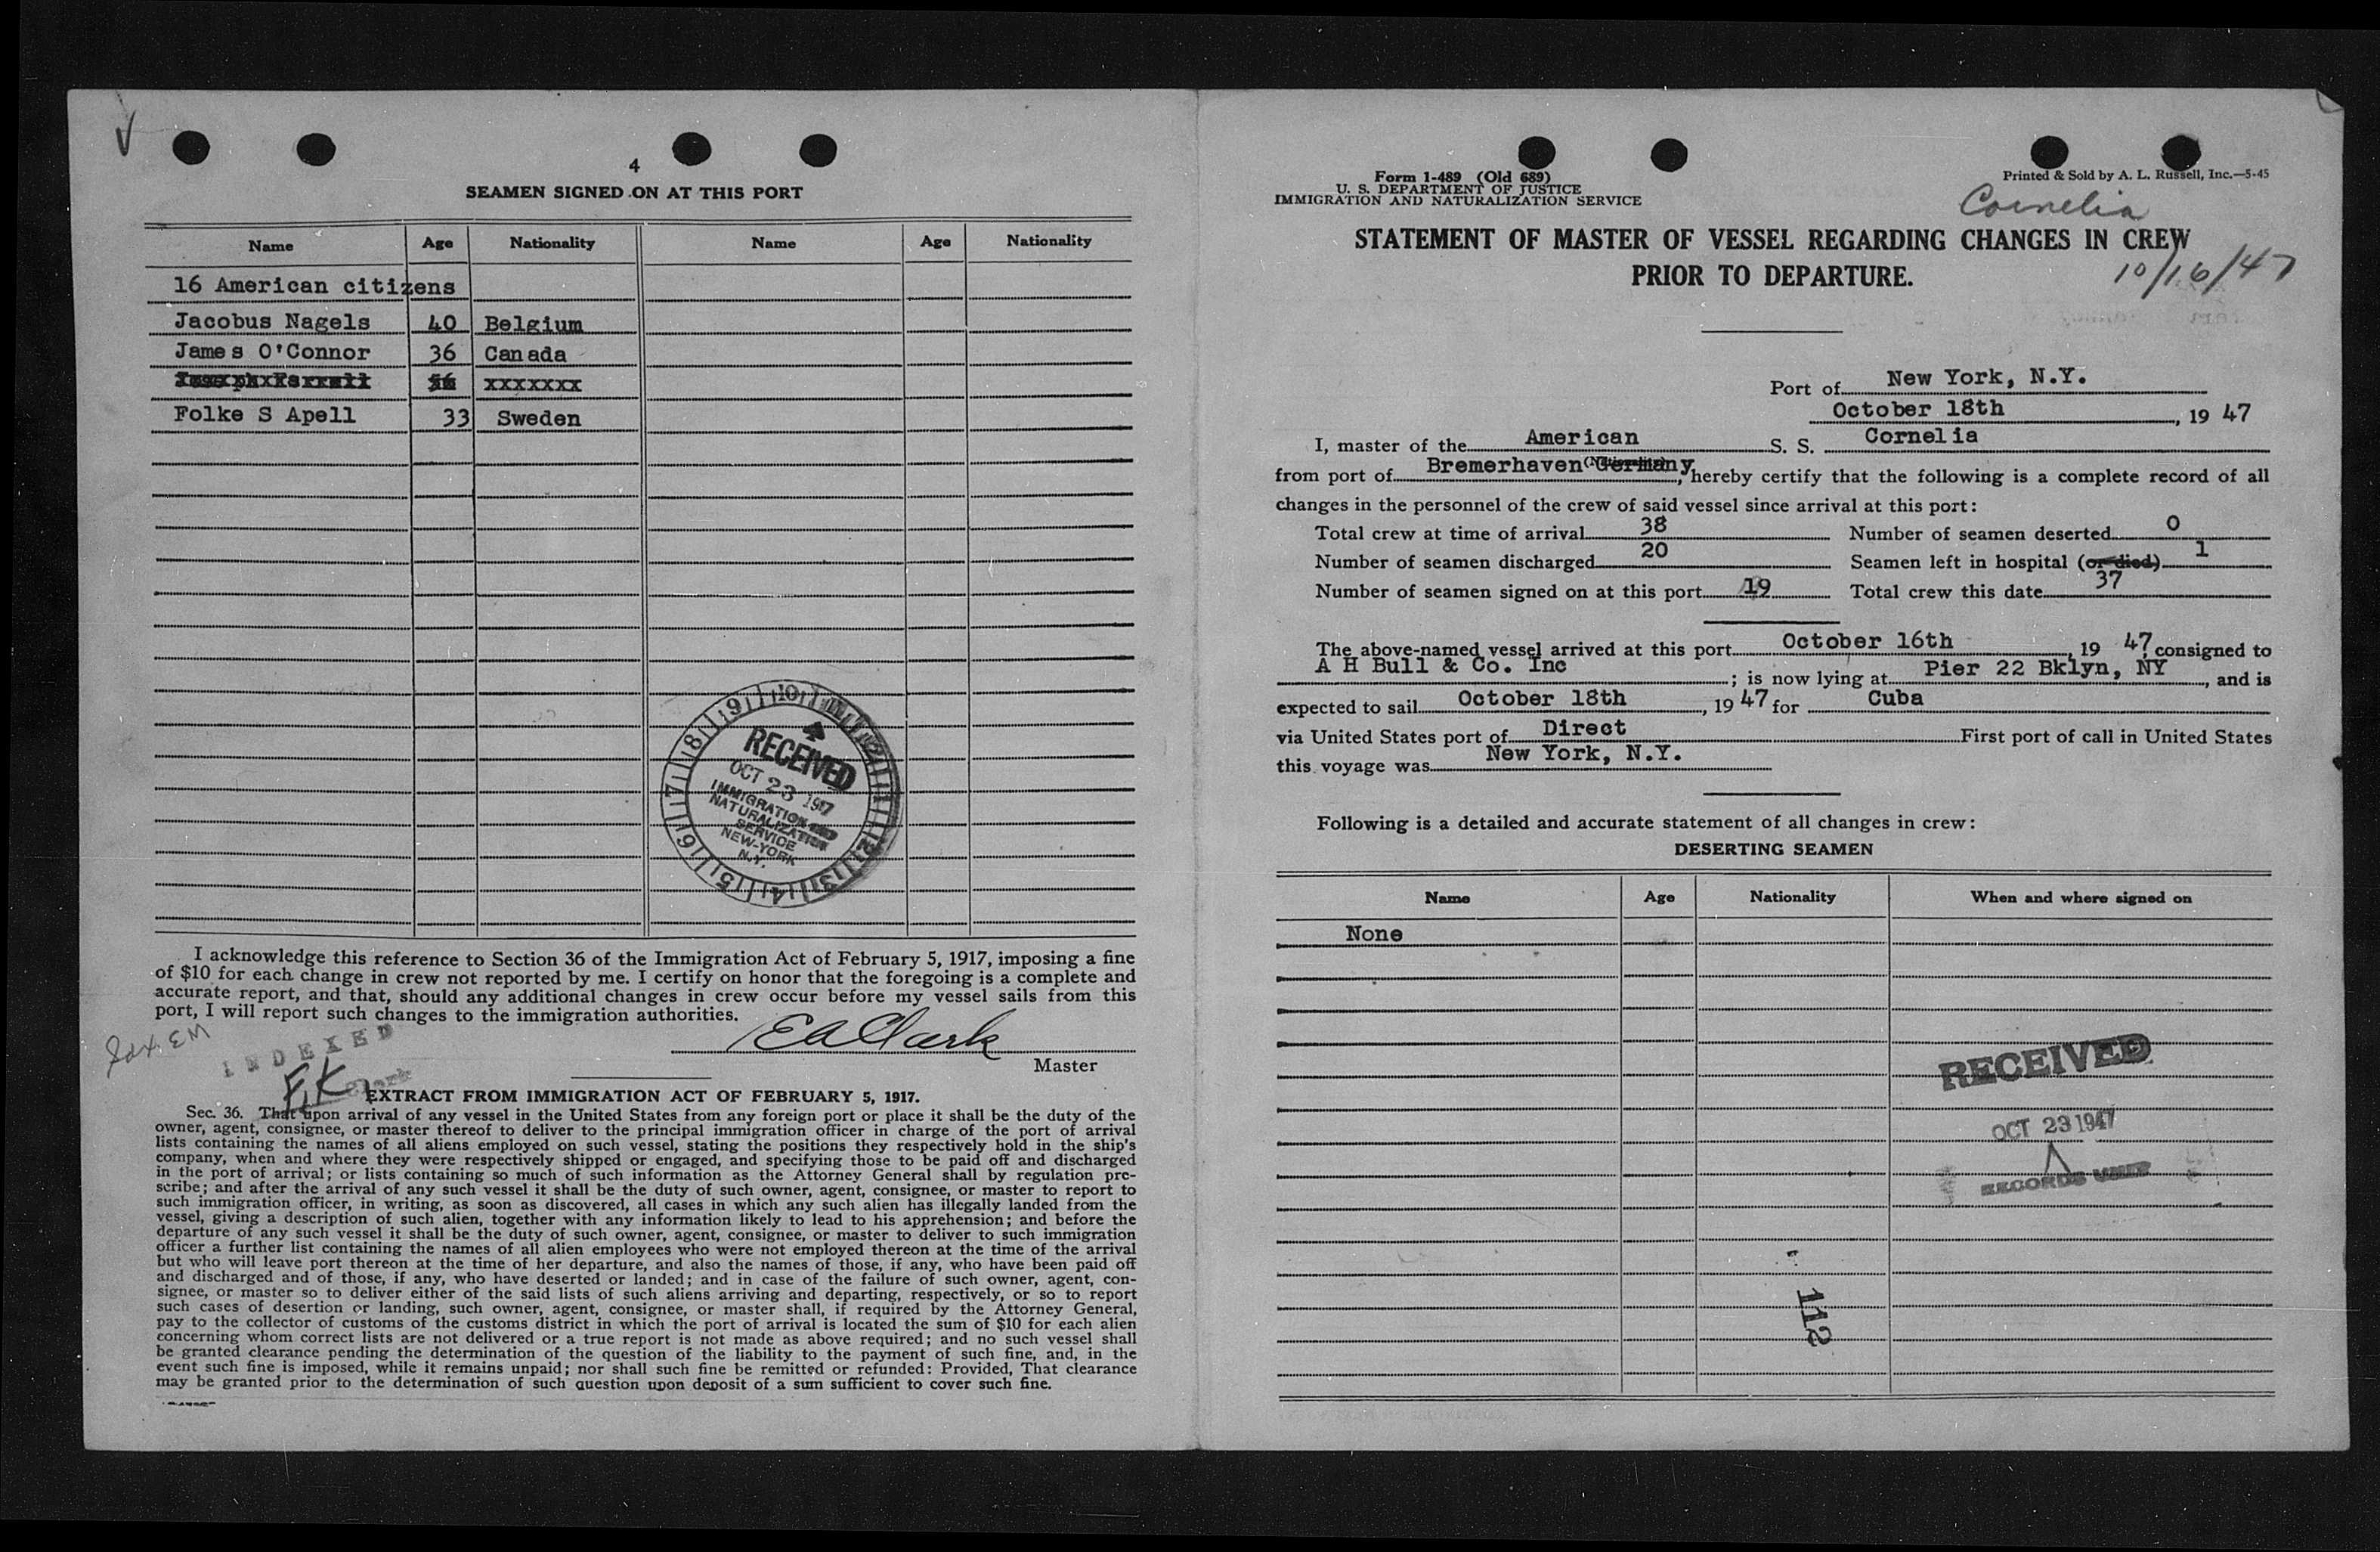 4
SEAMEN SIGNED ON AT THIS PORT
Name Age Nationality Name Age Nationality
16 American citizens
Jacobus Nagels 40 Belgium
James O'Connor 36 Canada
xxxxxxx
Folke S Apell 33 Sweden
RECEIVED
OCT 23 1947
IMMIGRATION AND
NATURALIZATION
SERVICE
NEW-YORK
N.Y.
I acknowledge this reference to Section 36 of the Immigration Act of February 5, 1917, imposing a fine
of $10 for each change in crew not reported by me. I certify on honor that the foregoing is a complete and
accurate report, and that, should any additional changes in crew occur before my vessel sails from this
port, I will report such changes to the immigration authorities.
EA Clark
Master
INDEXED
EXTRACT FROM IMMIGRATION ACT OF FEBRUARY 5, 1917.
Sec. 36. That upon arrival of any vessel in the United States from any foreign port or place it shall be the duty of the
owner, agent, consignee, or master thereof to deliver to the principal immigration officer in charge of the port of arrival
lists containing the names of all aliens employed on such vessel, stating the positions they respectively hold in the ship's
company, when and where they were respectively shipped or engaged, and specifying those to be paid off and discharged
in the port of arrival; or lists containing so much of such information as the Attorney General shall by regulation pre-
scribe; and after the arrival of any such vessel it shall be the duty of such owner, agent, consignee, or master to report to
such immigration officer, in writing, as soon as discovered, all cases in which any such alien has illegally landed from the
vessel, giving a description of such alien, together with any information likely to lead to his apprehension; and before the
departure of any such vessel it shall be the duty of such owner, agent, consignee, or master to deliver to such immigration
officer a further list containing the names of all alien employees who were not employed thereon at the time of the arrival
but who will leave port thereon at the time of her departure, and also the names of those, if any, who have been paid off
and discharged and of those, if any, who have deserted or landed; and in case of the failure of such owner, agent, con-
signee, or master so to deliver either of the said lists of such aliens arriving and departing, respectively, or so to report
such cases of desertion or landing, such owner, agent, consignee, or master shall, if required by the Attorney General,
pay to the collector of customs of the customs district in which the port of arrival is located the sum of $10 for each alien
concerning whom correct lists are not delivered or a true report is not made as above required; and no such vessel shall
be granted clearance pending the determination of the question of the liability to the payment of such fine, and, in the
event such fine is imposed, while it remains unpaid; nor shall such fine be remitted or refunded: Provided, That clearance
may be granted prior to the determination of such question upon deposit of a sum sufficient to cover such fine.
Form 1-489 (Old 689)
U. S. DEPARTMENT OF JUSTICE
IMMIGRATION AND NATURALIZATION SERVICE
Printed & Sold by A. L. Russell, Inc.—5-45
Cornelia
STATEMENT OF MASTER OF VESSEL REGARDING CHANGES IN CREW
PRIOR TO DEPARTURE.
10/16/47
Port of New York, N.Y.
October 18th, 19 47
I, master of the American S. S. Cornelia
from port of Bremerhaven Germany, hereby certify that the following is a complete record of all
changes in the personnel of the crew of said vessel since arrival at this port:
Total crew at time of arrival 38 Number of seamen deserted 0
Number of seamen discharged 20 Seamen left in hospital (or died) 1
Number of seamen signed on at this port 19 Total crew this date 37
The above-named vessel arrived at this port October 16th, 19 47, consigned to
A H Bull & Co. Inc; is now lying at Pier 22 Bklyn, NY, and is
expected to sail October 18th, 19 47 for Cuba
via United States port of Direct First port of call in United States
this voyage was New York, N.Y.
Following is a detailed and accurate statement of all changes in crew:
DESERTING SEAMEN
Name Age Nationality When and where signed on
None
RECEIVED
OCT 23 1947
RECORDS UNIT
112